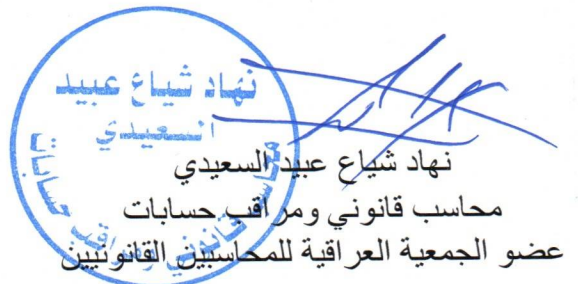 نهاد شياع عبيد
السعيدي
محاسب قانوني ومراقب حسابات
نهاد شياع عبيد السعيدي
محاسب قانوني ومراقب حسابات
عضو الجمعية العراقية للمحاسبين القانونيين